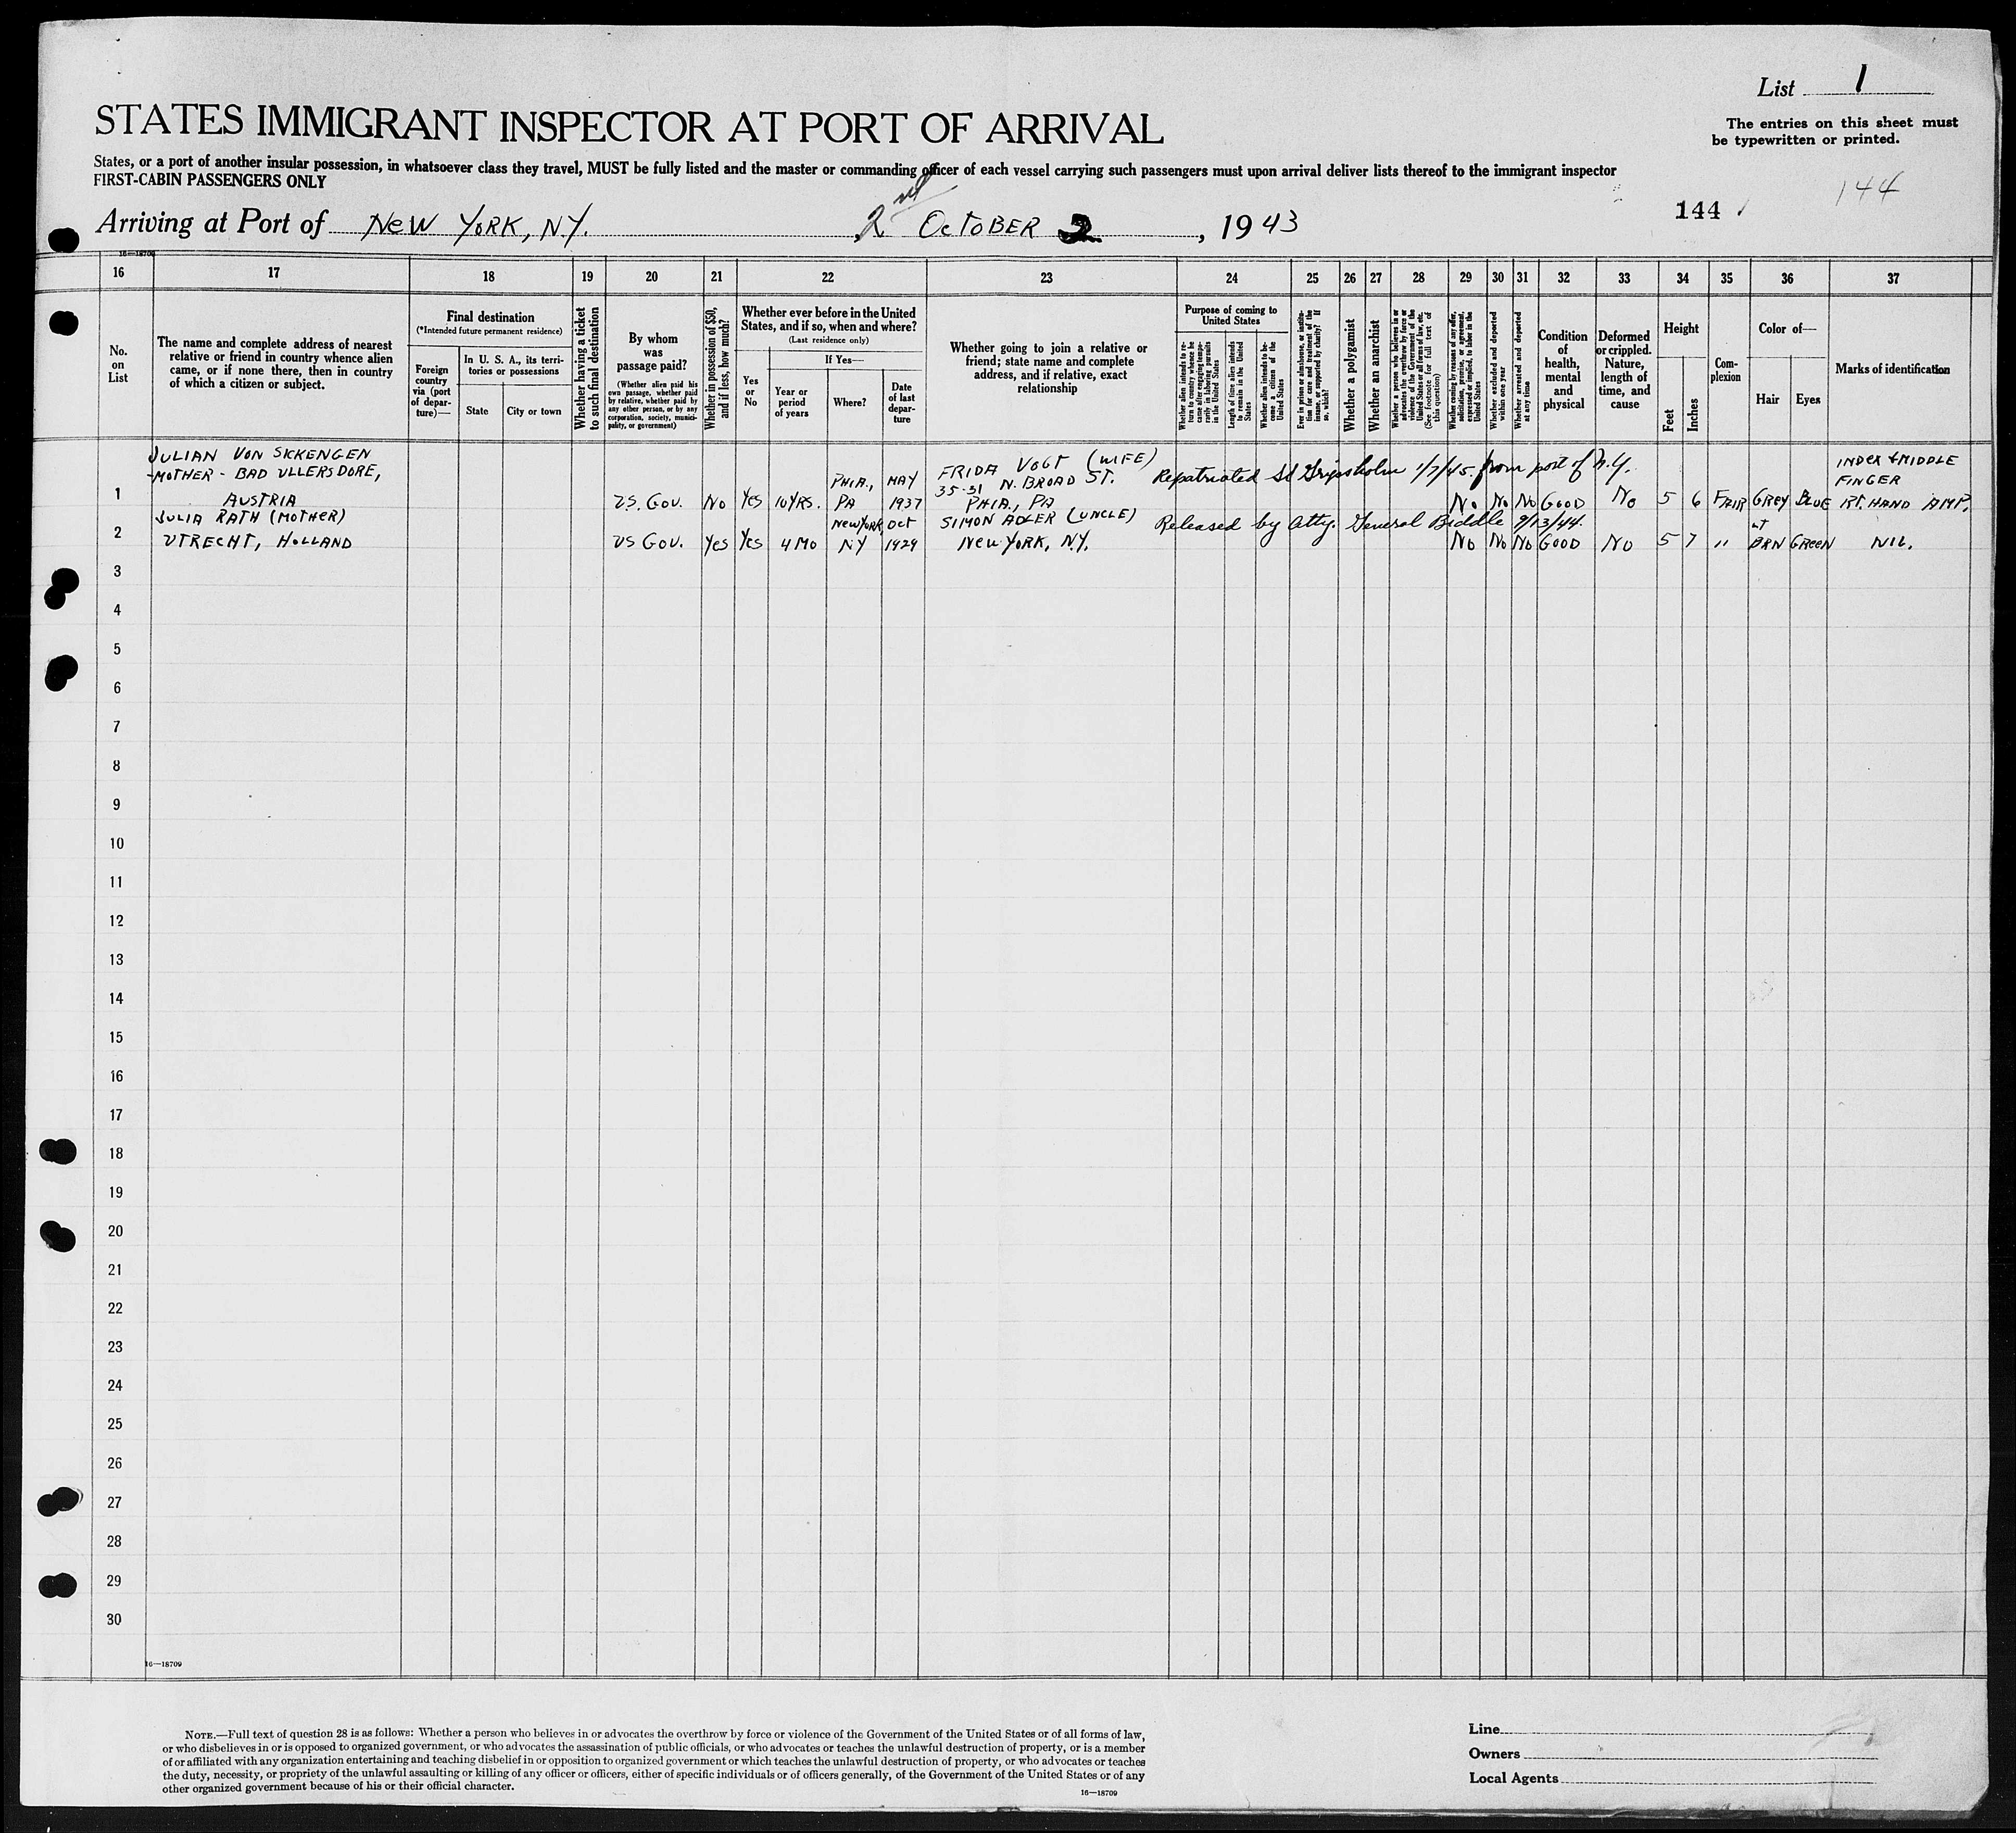 List 1
STATES IMMIGRANT INSPECTOR AT PORT OF ARRIVAL
The entries on this sheet must
be typewritten or printed.
States, or a port of another insular possession, in whatsoever class they travel, MUST be fully listed and the master or commanding officer of each vessel carrying such passengers must upon arrival deliver lists thereof to the immigrant inspector
FIRST-CABIN PASSENGERS ONLY
144 144
Arriving at Port of NEW YORK, N.Y. 2nd OCTOBER 2, 1943
16—18709
16 17 18 19 20 21 22 23 24 25 26 27 28 29 30 31 32 33 34 35 36 37
No. on List
The name and complete address of nearest relative or friend in country whence alien came, or if none there, then in country of which a citizen or subject.
Final destination
(*Intended future permanent residence)
Foreign country via (port of departure)—
In U. S. A., its territories or possessions
State
City or town
Whether having a ticket to such final destination
By whom was passage paid?
(Whether alien paid his own passage, whether paid by relative, whether paid by any other person, or by any corporation, society, municipality, or government)
Whether in possession of $50, and if less, how much?
Whether ever before in the United States, and if so, when and where?
(Last residence only)
Yes or No
If Yes—
Year or period of years
Where?
Date of last departure
Whether going to join a relative or friend; state name and complete address, and if relative, exact relationship
Purpose of coming to United States
Whether alien intends to return to country whence he came after engaging temporarily in laboring pursuits in the United States
Length of time alien intends to remain in the United States
Whether alien intends to become a citizen of the United States
Ever in prison or almshouse, or institution for care and treatment of the insane, or supported by charity? If so, which?
Whether a polygamist
Whether an anarchist
Whether a person who believes in or advocates the overthrow by force or violence of the Government of the United States or all forms of law, etc. (See footnote for full text of this question)
Whether coming by reasons of any offer, solicitation, promise, or agreement, expressed or implied, to labor in the United States
Whether excluded and deported within one year
Whether arrested and deported at any time
Condition of health, mental and physical
Deformed or crippled. Nature, length of time, and cause
Height
Feet
Inches
Complexion
Color of—
Hair
Eyes
Marks of identification
JULIAN VON SICKENGEN
MOTHER - BAD ULLERSDORE,
1 AUSTRIA US. GOV. NO YES 10 YRS. PHIA., PA MAY 1937 FRIDA VOGT (WIFE) 35-31 N. BROAD ST. PHIA., PA Repatriated SS Gripsholm 1/7/45 from port of N.Y. NO NO NO GOOD NO 5 6 FAIR GREY BLUE INDEX & MIDDLE FINGER RT. HAND AMP.
JULIA RATH (MOTHER)
2 UTRECHT, HOLLAND US GOV. YES YES 4 MO NEW YORK, NY OCT 1929 SIMON ADLER (UNCLE) NEW YORK, N.Y. Released by Atty. General Biddle 9/13/44. NO NO NO GOOD NO 5 7 " LT BRN GREEN NIL.
3
4
5
6
7
8
9
10
11
12
13
14
15
16
17
18
19
20
21
22
23
24
25
26
27
28
29
30
16—18709
NOTE.—Full text of question 28 is as follows: Whether a person who believes in or advocates the overthrow by force or violence of the Government of the United States or of all forms of law,
or who disbelieves in or is opposed to organized government, or who advocates the assassination of public officials, or who advocates or teaches the unlawful destruction of property, or is a member
of or affiliated with any organization entertaining and teaching disbelief in or opposition to organized government or which teaches the unlawful destruction of property, or who advocates or teaches
the duty, necessity, or propriety of the unlawful assaulting or killing of any officer or officers, either of specific individuals or of officers generally, of the Government of the United States or of any
other organized government because of his or their official character.
16—18709
Line
Owners
Local Agents